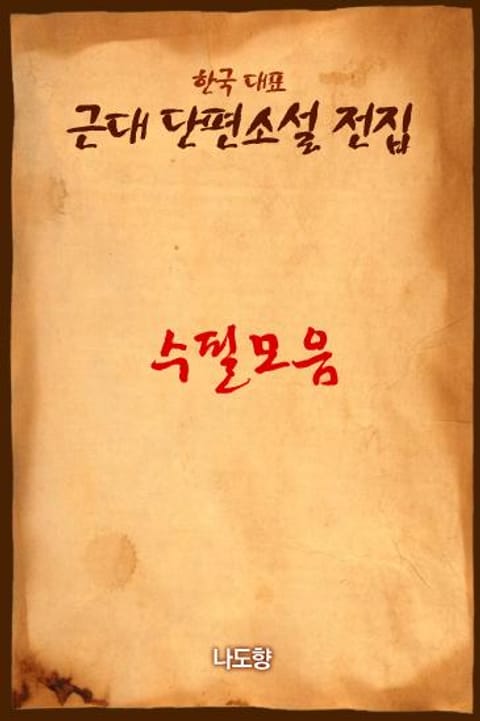 한국 대표
근대 단편소설 전집
수필모음
나도향